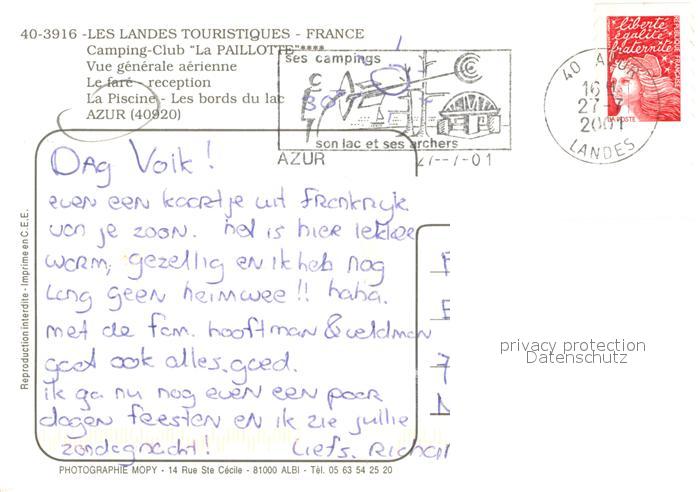 40-3916 -LES LANDES TOURISTIQUES - FRANCE
Camping-Club "La PAILLOTTE"****
Vue générale aérienne
Le faré - reception
La Piscine - Les bords du lac
AZUR (40920)
ses campings
son lac et ses archers
AZUR 27-7-01
40 AZUR
16H
27-7
2001
LANDES
liberté
égalité
fraternité
RÉPUBLIQUE FRANÇAISE
LA POSTE
DAG VOlk!
even een kaartje uit Frankryk
van je zoon. het is hier lekker
warm, gezellig en ik heb nog
lang geen heimwee!! haha.
met de fam. hooftman & veldman
gaat ook alles goed.
ik ga nu nog even een paar
dagen feesten en ik zie jullie
zondagnacht! Liefs. Richar
Reproduction interdite - Imprimé en C.E.E.
PHOTOGRAPHIE MOPY - 14 Rue Ste Cécile - 81000 ALBI - Tél. 05 63 54 25 20
privacy protection
Datenschutz